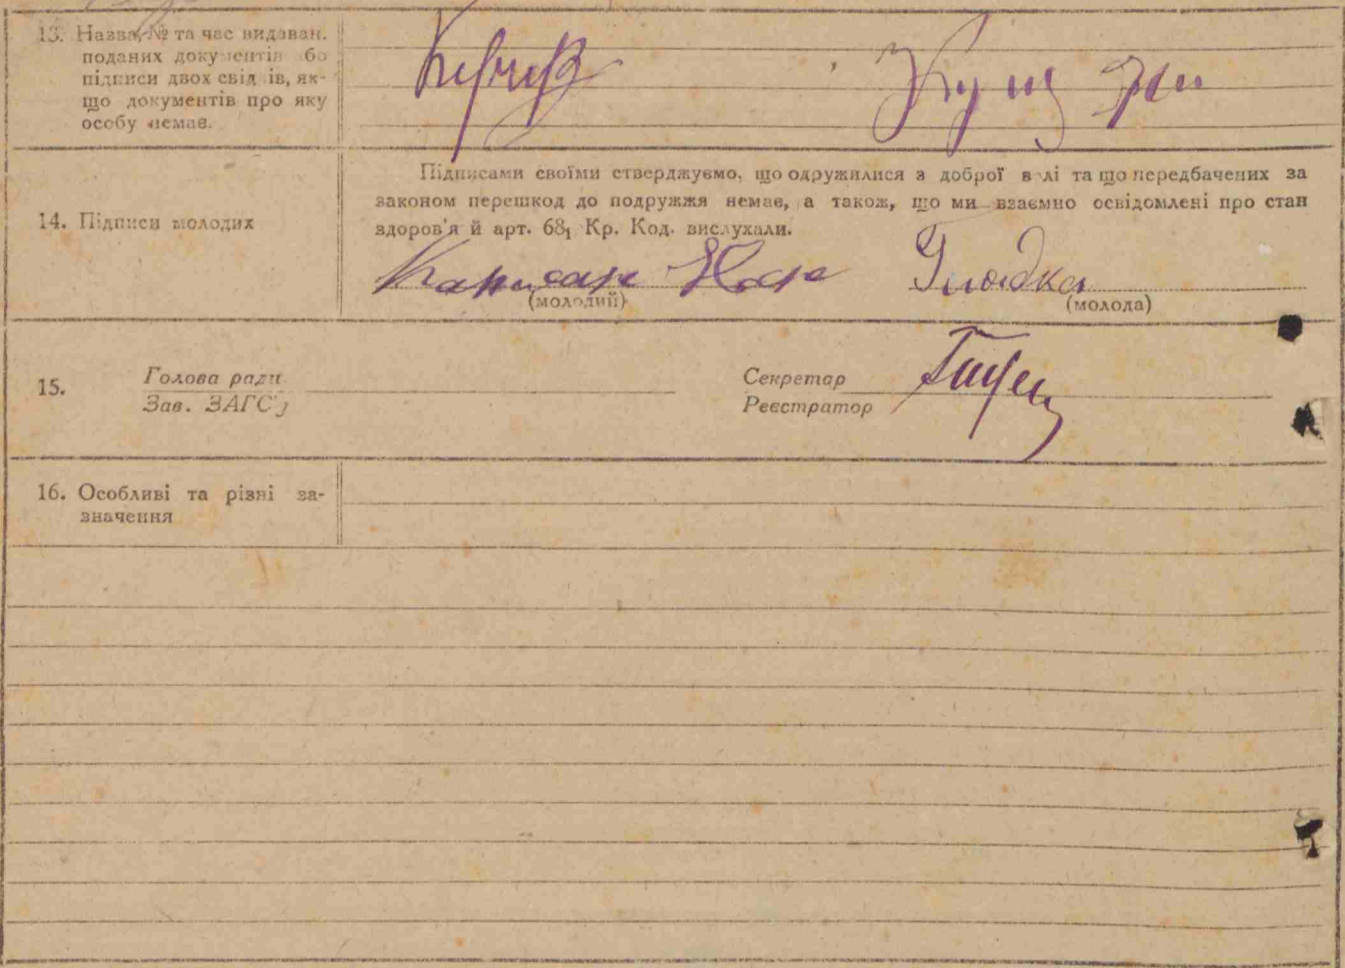 13. Назва, № та час видаван.
поданих документів бо
підписи двох свід ів, як-
що документів про яку
особу немає.
Підписами своїми стверджуємо, що одружилися з доброї в лі та що передбачених за
законом перешкод до подружжя немає, а також, що ми взаємно освідомлені про стан
здоров'я й арт. 68₁ Кр. Код. вислухали.
14. Підписи молодих
Гладка
(молодий)
(молода)
15.
Голова ради
Зав. ЗАГС'у
Секретар
Реєстратор
16. Особливі та різні за-
значення